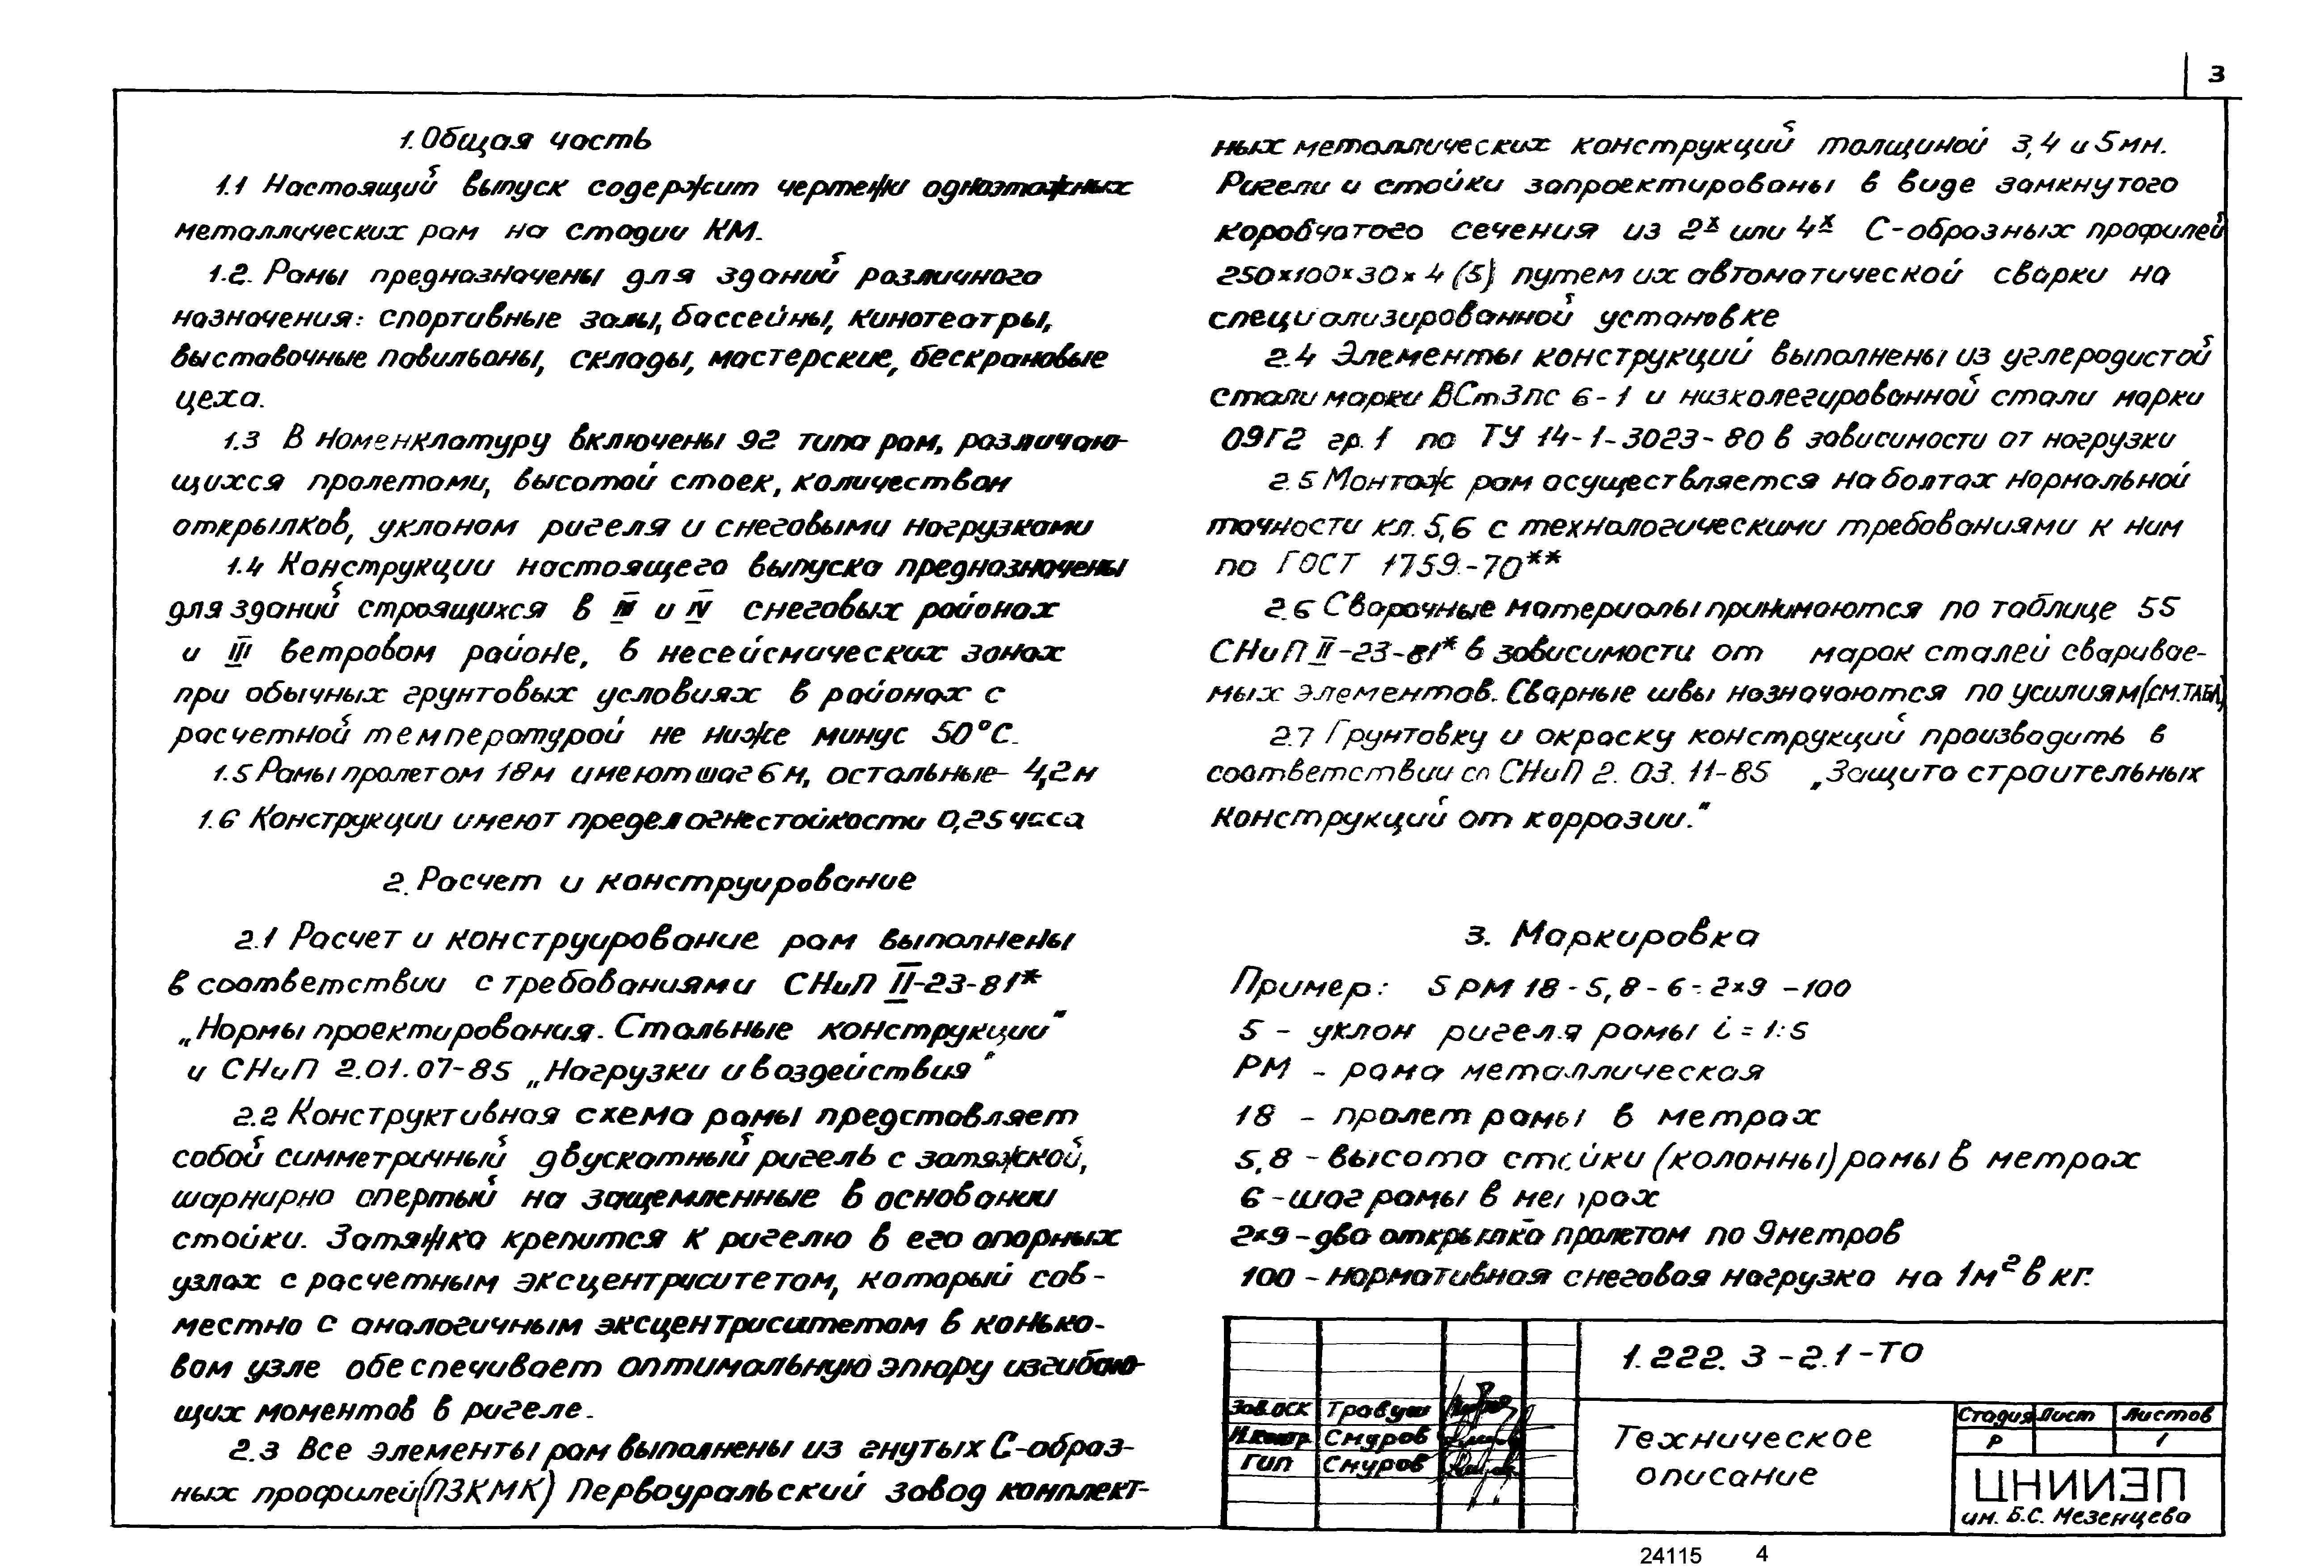 3
1. Общая часть
1.1 Настоящий выпуск содержит чертежи одноэтажных
металлических рам на стадии КМ.
1.2. Рамы предназначены для зданий различного
назначения: спортивные залы, бассейны, кинотеатры,
выставочные павильоны, склады, мастерские, бескрановые
цеха.
1.3 В номенклатуру включены 92 типа рам, различаю-
щихся пролетами, высотой стоек, количеством
открылков, уклоном ригеля и снеговыми нагрузками
1.4 Конструкции настоящего выпуска предназначены
для зданий строящихся в III и IV снеговых районах
и III ветровом районе, в несейсмических зонах
при обычных грунтовых условиях в районах с
расчетной температурой не ниже минус 50°С.
1.5 Рамы пролетом 18м имеют шаг 6м, остальные- 4,2м
1.6 Конструкции имеют предел огнестойкости 0,25 часа
2. Расчет и конструирование
2.1 Расчет и конструирование рам выполнены
в соответствии с требованиями СНиП II-23-81*
„Нормы проектирования. Стальные конструкции"
и СНиП 2.01.07-85 „Нагрузки и воздействия"
2.2 Конструктивная схема рамы представляет
собой симметричный двускатный ригель с затяжкой,
шарнирно опертый на защемленные в основании
стойки. Затяжка крепится к ригелю в его опорных
узлах с расчетным эксцентриситетом, который сов-
местно с аналогичным эксцентриситетом в конько-
вом узле обеспечивает оптимальную эпюру изгибаю-
щих моментов в ригеле.
2.3 Все элементы рам выполнены из гнутых С-образ-
ных профилей (ПЗКМК) Первоуральский завод комплект-
ных металлических конструкций толщиной 3,4 и 5мм.
Ригели и стойки запроектированы в виде замкнутого
коробчатого сечения из 2х или 4х С-образных профилей
250×100×30×4(5) путем их автоматической сварки на
специализированной установке
2.4 Элементы конструкций выполнены из углеродистой
стали марки ВСт3пс 6-1 и низколегированной стали марки
09Г2 гр.1 по ТУ 14-1-3023-80 в зависимости от нагрузки
2.5 Монтаж рам осуществляется на болтах нормальной
точности кл. 5,6 с технологическими требованиями к ним
по ГОСТ 1759-70**
2.6 Сварочные материалы принимаются по таблице 55
СНиП II-23-81* в зависимости от марок сталей сваривае-
мых элементов. Сварные швы назначаются по усилиям (СМ.ТАБЛ)
2.7 Грунтовку и окраску конструкций производить в
соответствии со СНиП 2.03.11-85 „Защита строительных
конструкций от коррозии."
3. Маркировка
Пример: 5 РМ 18 - 5,8 - 6 - 2×9 - 100
5 - уклон ригеля рамы i = 1:5
РМ - рама металлическая
18 - пролет рамы в метрах
5,8 - высота стойки (колонны) рамы в метрах
6 - шаг рамы в метрах
2×9 - два открылка пролетом по 9 метров
100 - нормативная снеговая нагрузка на 1м² в кг.
1.222.3-2.1-ТО
Зав.ОСК Травуш
Н.контр. Смуров
ГИП Смуров
Техническое
описание
Стадия Лист Листов
Р 1
ЦНИИЭП
им. Б.С. Мезенцева
24115 4